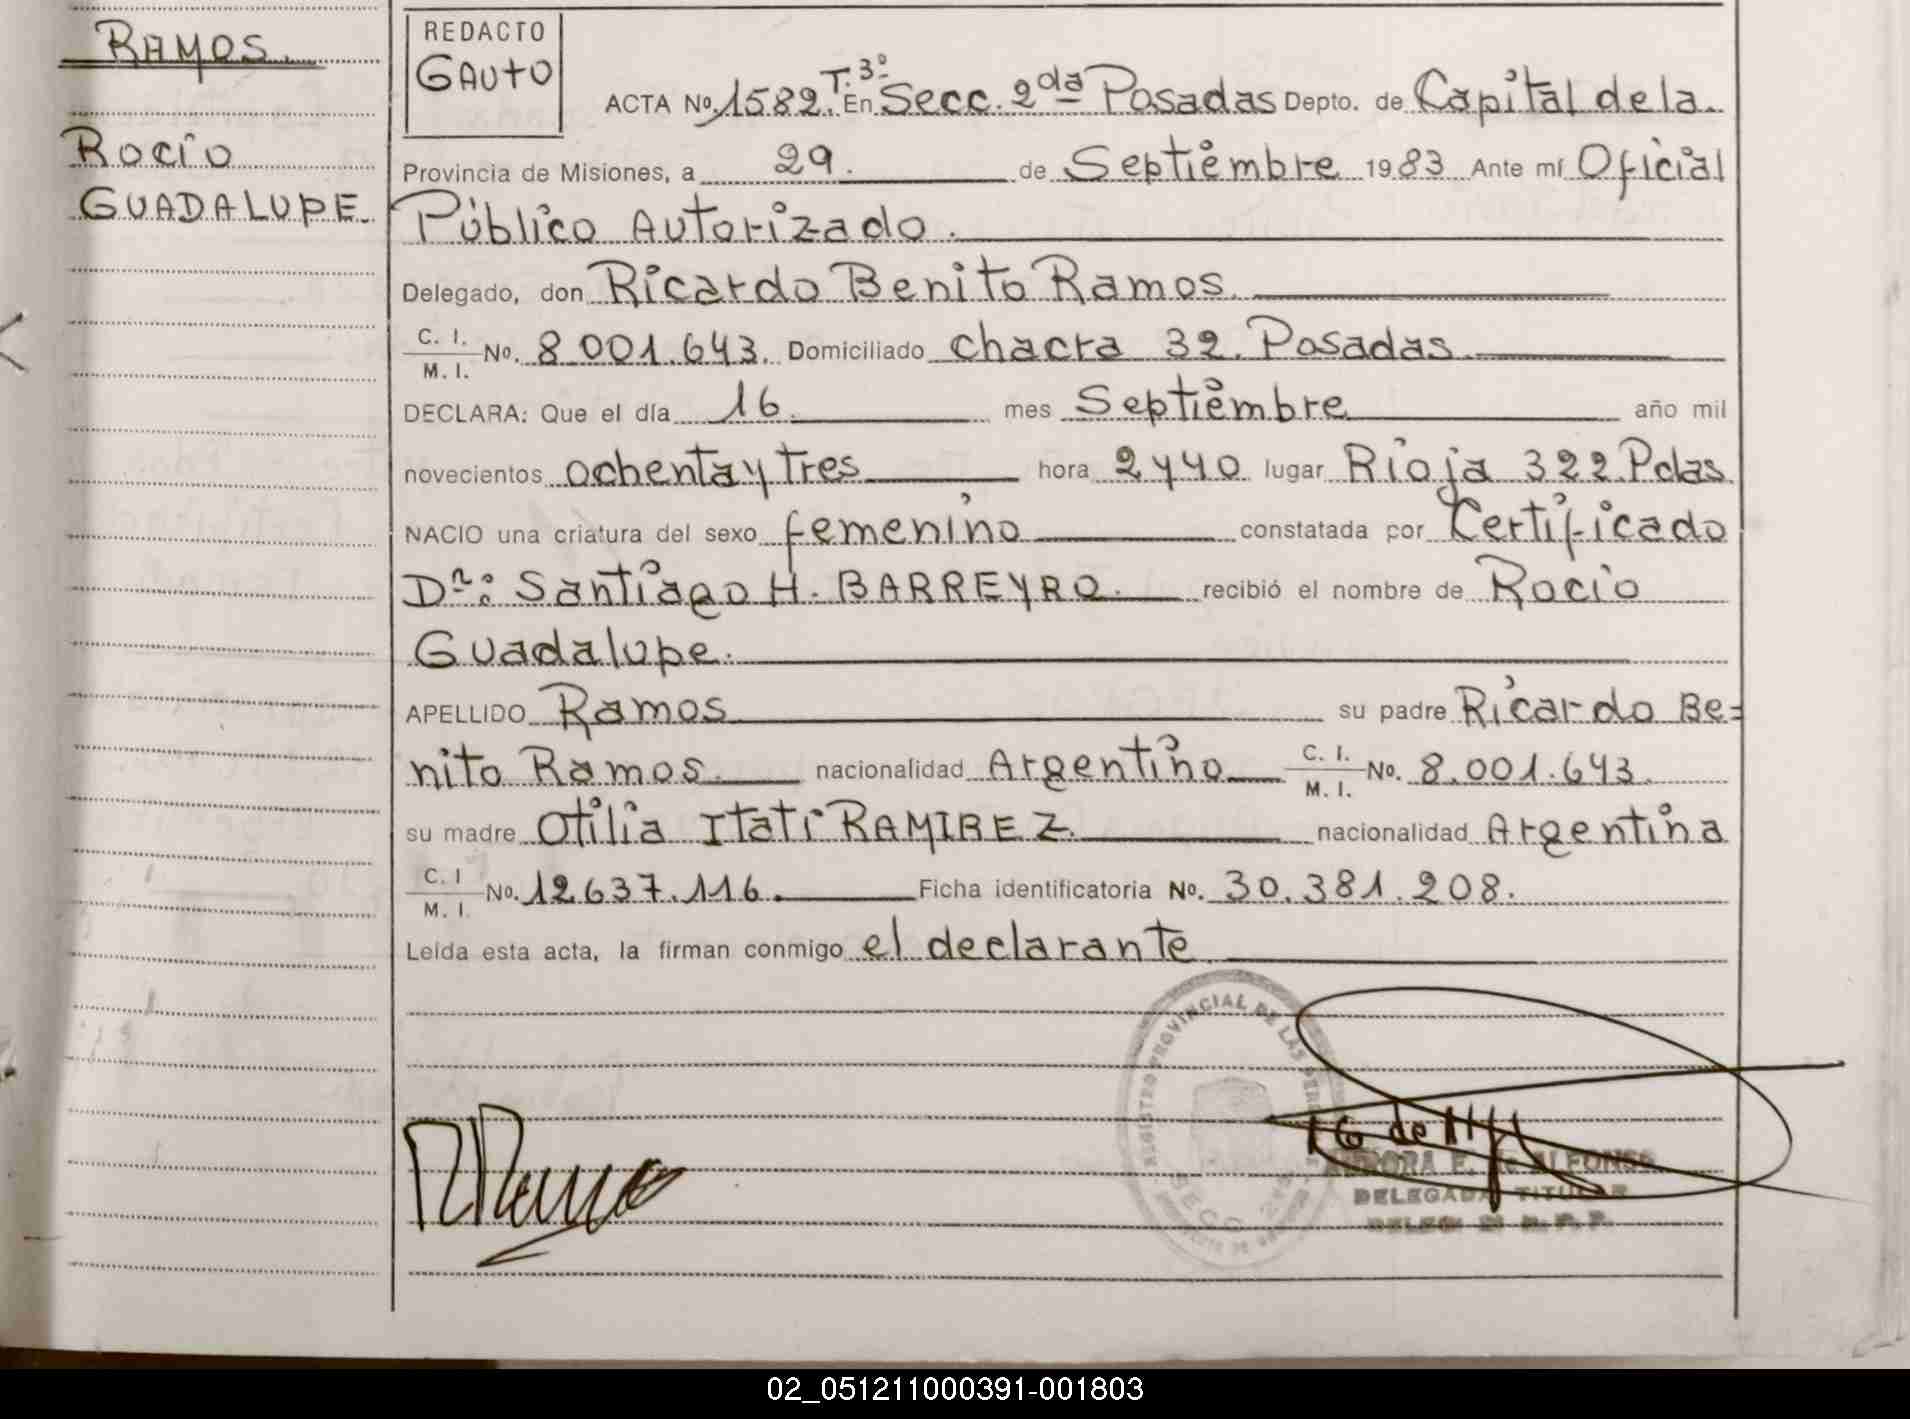 RAMOS.
Rocío
GUADALUPE.
REDACTO
GAUTO
ACTA No. 1582. T.3º En Secc. 2da Posadas Depto. de Capital de la
Provincia de Misiones, a 29. de Septiembre 1983 Ante mí Oficial
Público Autorizado.
Delegado, don Ricardo Benito Ramos.
C. I. M. I. No. 8.001.643. Domiciliado chacra 32. Posadas.
DECLARA: Que el día 16. mes Septiembre año mil
novecientos ochenta y tres hora 2 y 40 lugar Rioja 322. Pdas.
NACIO una criatura del sexo femenino constatada por Certificado
Dr.: Santiago H. BARREYRO. recibió el nombre de Rocío
Guadalupe.
APELLIDO Ramos su padre Ricardo Be=
nito Ramos. nacionalidad Argentino C. I. M. I. No. 8.001.643.
su madre Otilia Itatí RAMIREZ. nacionalidad Argentina
C. I M. I. No. 12.637.116. Ficha identificatoria No. 30.381.208.
Leída esta acta, la firman conmigo el declarante
REGISTRO PROVINCIAL DE LAS
SECC.
R Ramos
E. de ALFONSO
DELEGADA TITULAR
02_051211000391-001803